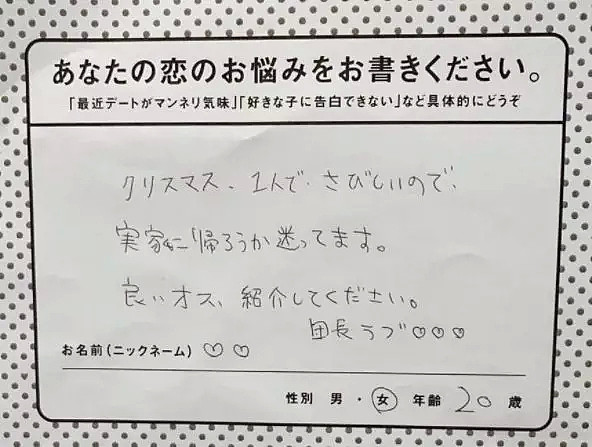 あなたの恋のお悩みをお書きください。
「最近デートがマンネリ気味」「好きな子に告白できない」など具体的にどうぞ
クリスマス、1人で、さびしいので、
実家に帰ろうか迷ってます。
良いオス、紹介してください。
団長ラブ♡♡♡
お名前(ニックネーム) ♡♡
性別 男・女 年齢 20 歳